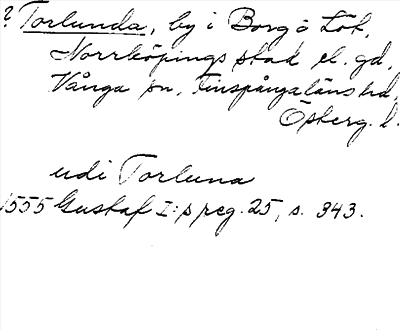 ? Torlunda, by i Borg o Löt,
Norrköpings stad el. gd,
Vånga sn, Finspångaläns hd,
Österg. l.
udi Torluna
1555 Gustaf I:s reg. 25, s. 343.